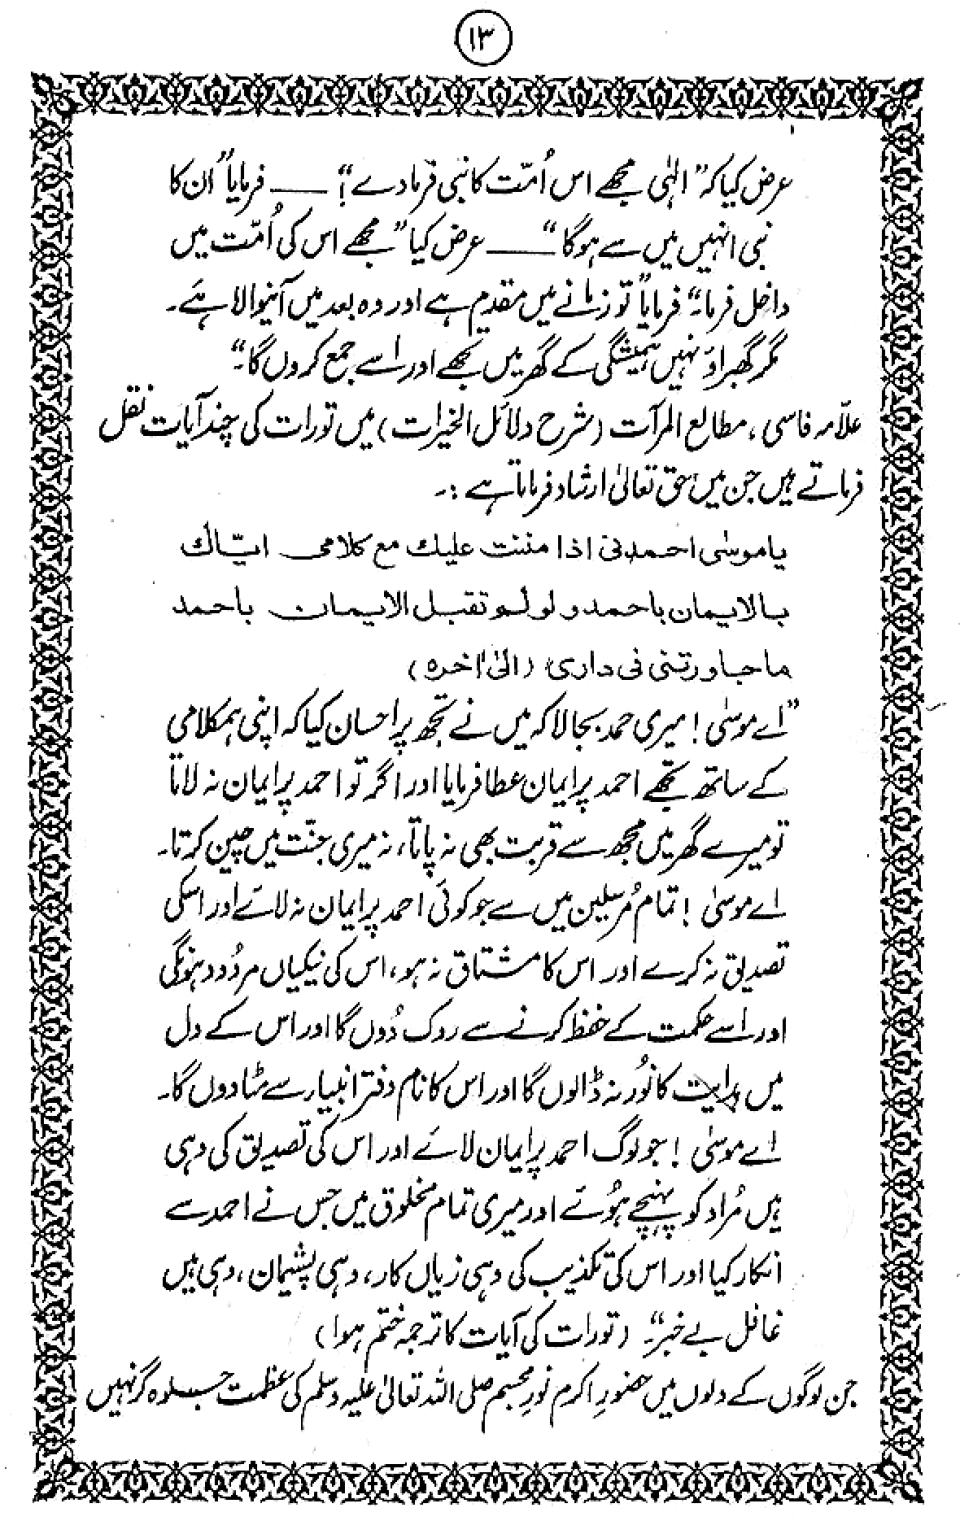 ۱۳
عرض کیا کہ "الٰہی مجھے اس اُمّت کا نبی فرما دے!" ــــ فرمایا "ان کا
نبی انہیں میں سے ہوگا" ــــ عرض کیا "مجھے اس کی اُمّت میں
داخل فرما" فرمایا "تو زمانے میں مقدم ہے اور وہ بعد میں آنیوالا ہے۔
مگر گھبراؤ نہیں ہمیشگی کے گھر میں تجھے اور اسے جمع کروں گا"
علاّمہ فاسی، مطالع المرآت (شرح دلائل الخیرات) میں تورات کی چند آیات نقل
فرماتے ہیں جن میں حق تعالیٰ ارشاد فرماتا ہے :۔
یا موسٰی احمدنی اذا مننت علیك مع کلامی ایّاك
بالایمان باحمد و لو لم تقبل الایمان باحمد
ما جاورتنی فی داری (الیٰ آخرہ)
"اے موسیٰ! میری حمد بجا لا کہ میں نے تجھ پر احسان کیا کہ اپنی ہمکلامی
کے ساتھ تجھے احمد پر ایمان عطا فرمایا اور اگر تو احمد پر ایمان نہ لاتا
تو میرے گھر میں مجھ سے قربت بھی نہ پاتا، نہ میری جنّت میں چین کرتا۔
اے موسیٰ! تمام مُرسلین میں سے جو کوئی احمد پر ایمان نہ لائے اور اسکی
تصدیق نہ کرے اور اس کا مشتاق نہ ہو، اس کی نیکیاں مردُود ہونگی
اور اسے حکمت کے حفظ کرنے سے روک دُوں گا اور اس کے دل
میں ہدایت کا نُور نہ ڈالوں گا اور اس کا نام دفترِ انبیاء سے مٹا دوں گا۔
اے موسیٰ! جو لوگ احمد پر ایمان لائے اور اس کی تصدیق کی وہی
ہیں مُراد کو پہنچے ہُوئے اور میری تمام مخلوق میں جس نے احمد سے
انکار کیا اور اس کی تکذیب کی وہی زیاں کار، وہی پشیمان، وہی ہیں
غافل بے خبر" (تورات کی آیات کا ترجمہ ختم ہوا)
جن لوگوں کے دلوں میں حضورِ اکرم نورِ مجسم صلی اللہ تعالیٰ علیہ وسلم کی عظمت جلوہ گر نہیں